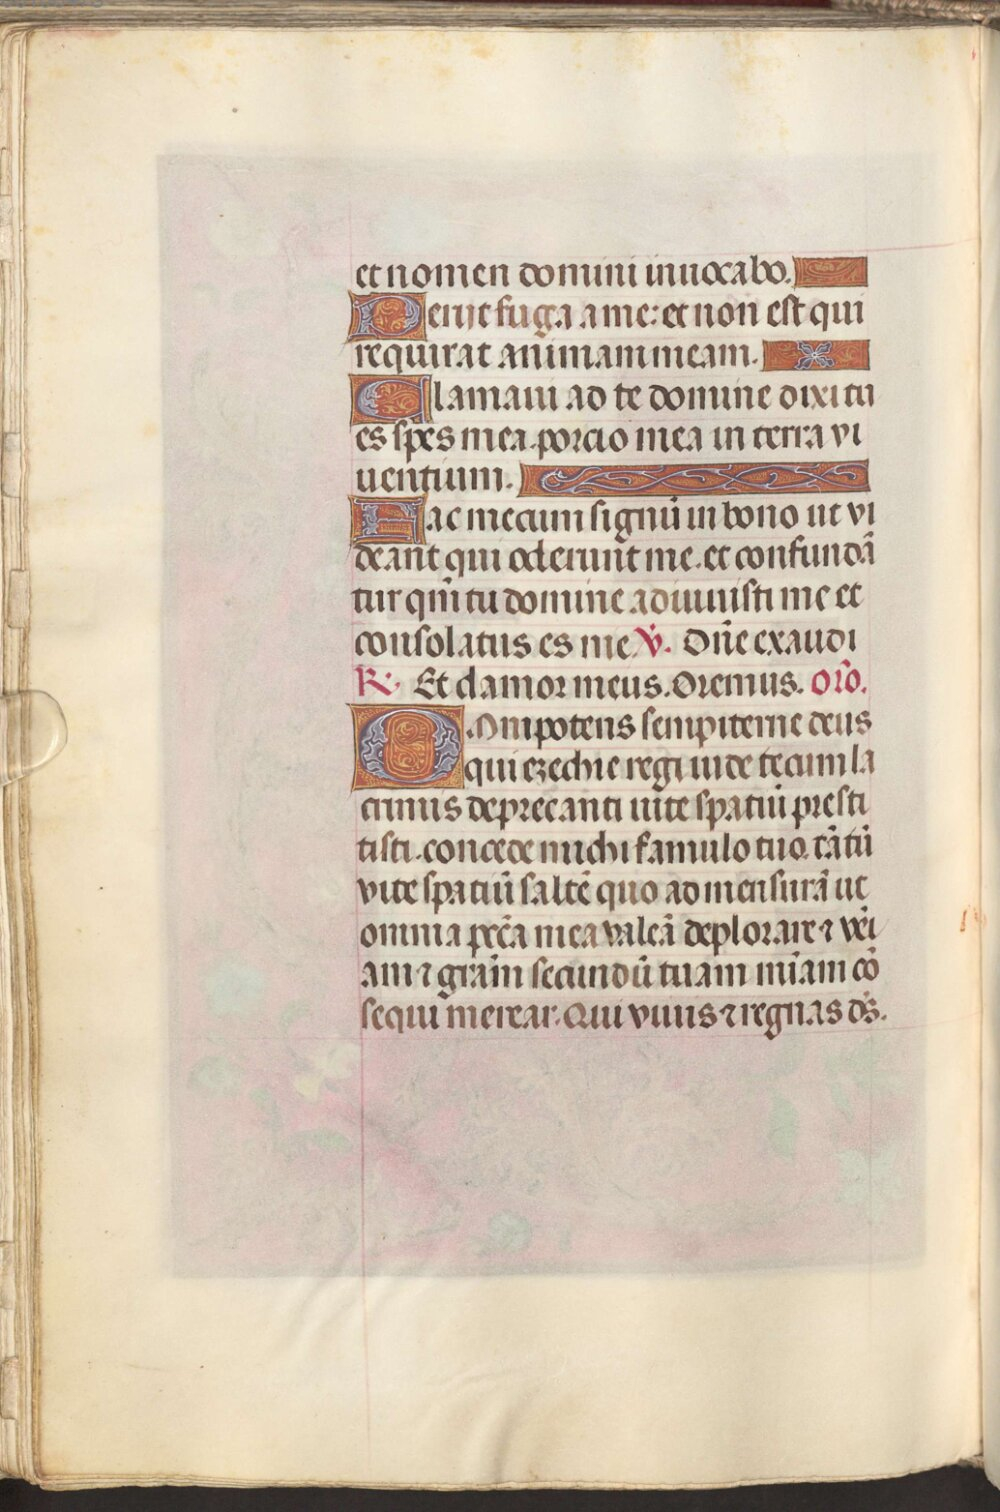 et nomen domini inuocabo.
Periit fuga a me: et non est qui
requirat animam meam.
Clamaui ad te domine dixi tu
es spes mea. porcio mea in terra vi
uentium.
Fac mecum signũ in bono ut vi
deant qui oderunt me. et confundã
tur qm̃ tu domine adiuuisti me et
consolatus es me. V̇. Dñe exaudi
R. Et clamor meus. Oremus. Or̃o.
Omnipotens sempiterne deus
qui ezechie regi iude te cum la
crimis deprecanti vite spatiũ presti
tisti. concede michi famulo tuo. tãtũ
vite spatiũ saltẽ quo ad mensurã ut
omnia pc̃ca mea valeã deplorare ⁊ vẽi
am ⁊ gratia᷑m secundũ tuam mĩam cõ
sequi merear. Qui viuis ⁊ regnas ds̃.